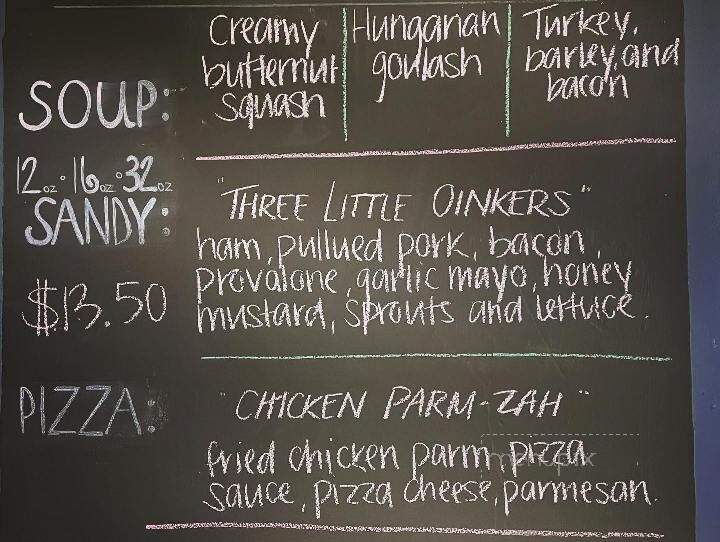 SOUP:
12oz · 16oz · 32oz
Creamy
butternut
squash
Hungarian
goulash
Turkey,
barley, and
bacon
SANDY:
$13.50
"THREE LITTLE OINKERS"
ham, pullued pork, bacon,
provalone, garlic mayo, honey
mustard, sprouts and lettuce.
PIZZA:
"CHICKEN PARM-ZAH"
fried chicken parm, pizza
sauce, pizza cheese, parmesan.